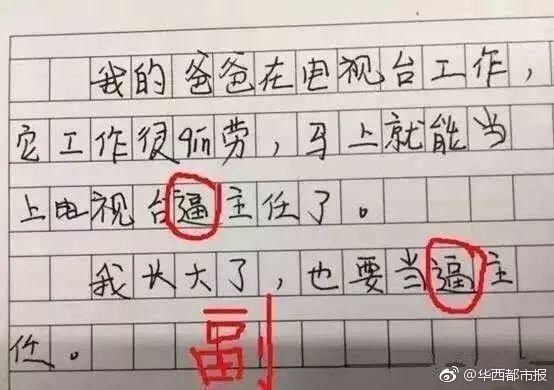 我的爸爸在电视台工作，
它工作很qin劳，马上就能当
上电视台逼主任了。
我长大了，也要当逼主
任。
副
@华西都市报